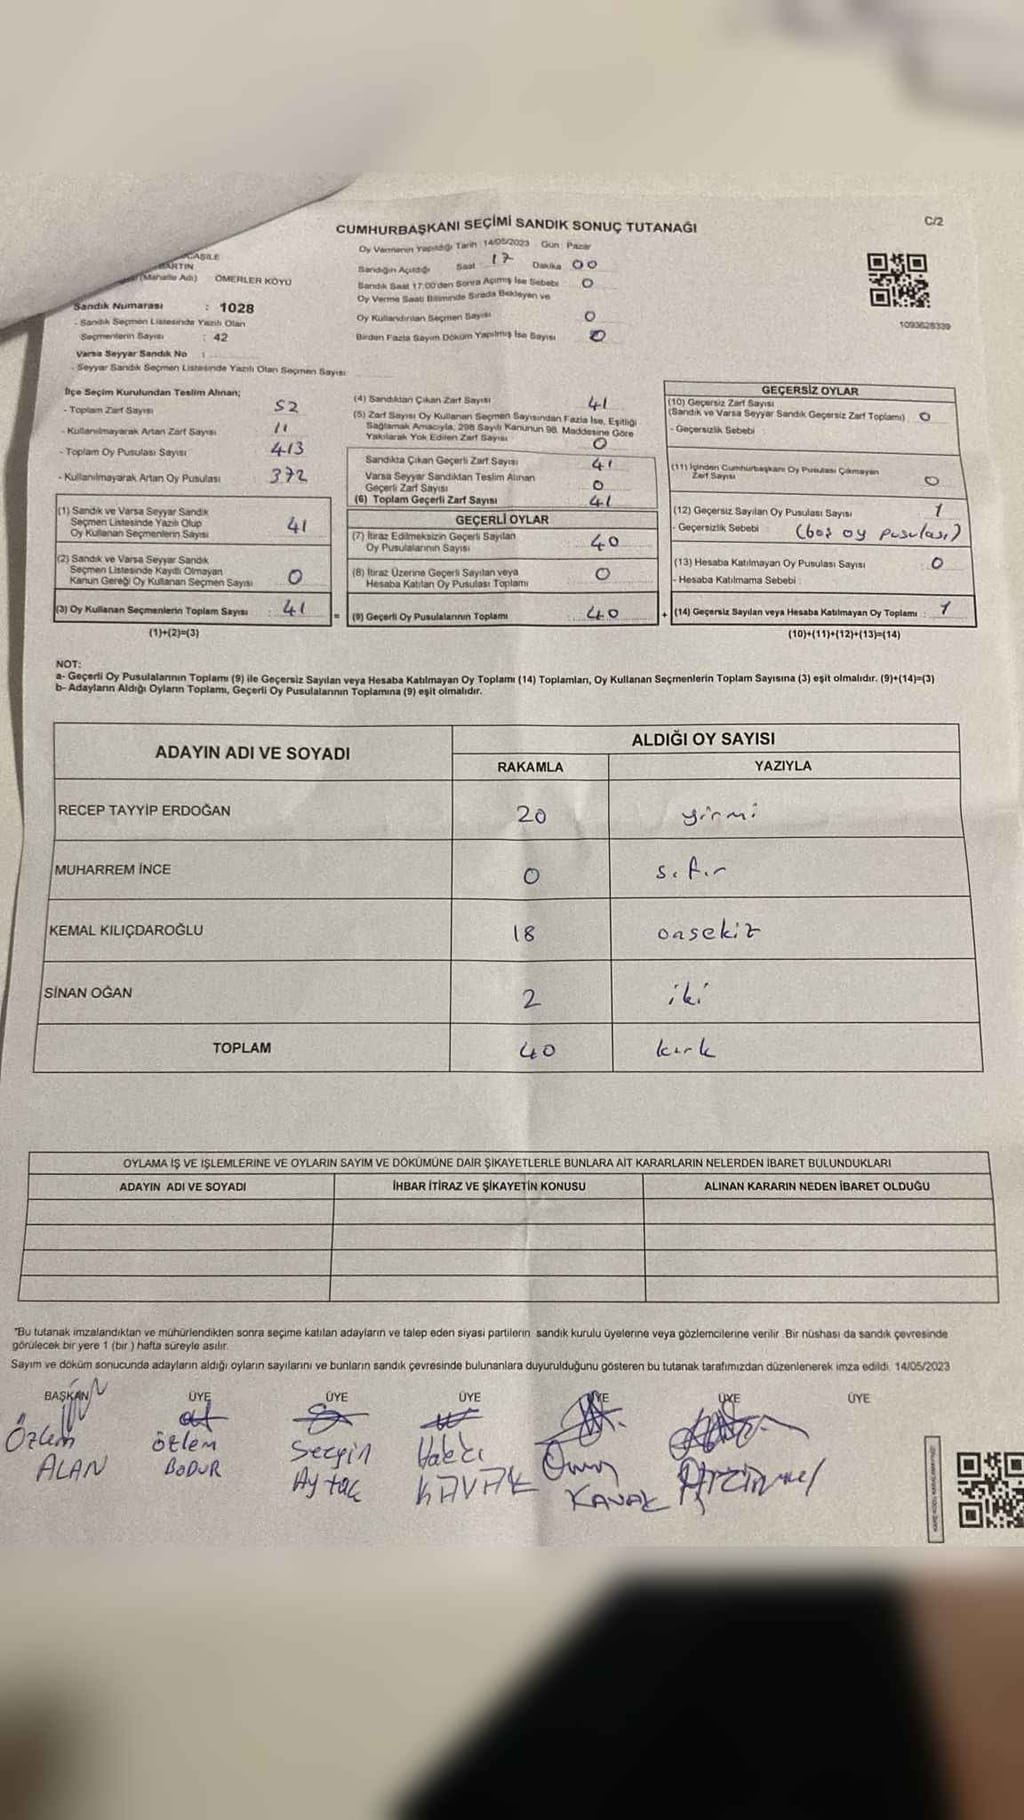 C/2
CUMHURBAŞKANI SEÇİMİ SANDIK SONUÇ TUTANAĞI
Oy Vermenin Yapıldığı Tarih 14/05/2023 Gün: Pazar
Sandığın Açıldığı Saat 17 Dakika 00
Sandık Saat 17:00'den Sonra Açılmış İse Sebebi 0
Oy Verme Saati Bitiminde Sırada Bekleyen ve
Oy Kullandırılan Seçmen Sayısı 0
Birden Fazla Sayım Döküm Yapılmış İse Sayısı 0
(Mahalle Adı) ÖMERLER KÖYÜ
Sandık Numarası : 1028
- Sandık Seçmen Listesinde Yazılı Olan
Seçmenlerin Sayısı : 42
Varsa Seyyar Sandık No :
- Seyyar Sandık Seçmen Listesinde Yazılı Olan Seçmen Sayısı:
1093628339
İlçe Seçim Kurulundan Teslim Alınan;
- Toplam Zarf Sayısı 52
- Kullanılmayarak Artan Zarf Sayısı 11
- Toplam Oy Pusulası Sayısı 413
- Kullanılmayarak Artan Oy Pusulası 372
(1) Sandık ve Varsa Seyyar Sandık
Seçmen Listesinde Yazılı Olup
Oy Kullanan Seçmenlerin Sayısı 41
(2) Sandık ve Varsa Seyyar Sandık
Seçmen Listesinde Kayıtlı Olmayan
Kanun Gereği Oy Kullanan Seçmen Sayısı 0
(3) Oy Kullanan Seçmenlerin Toplam Sayısı : 41
(1)+(2)=(3)
(4) Sandıktan Çıkan Zarf Sayısı 41
(5) Zarf Sayısı Oy Kullanan Seçmen Sayısından Fazla İse, Eşitliği
Sağlamak Amacıyla, 298 Sayılı Kanunun 98. Maddesine Göre
Yakılarak Yok Edilen Zarf Sayısı 0
Sandıkta Çıkan Geçerli Zarf Sayısı 41
Varsa Seyyar Sandıktan Teslim Alınan
Geçerli Zarf Sayısı 0
(6) Toplam Geçerli Zarf Sayısı 41
GEÇERLİ OYLAR
(7) İtiraz Edilmeksizin Geçerli Sayılan
Oy Pusulalarının Sayısı 40
(8) İtiraz Üzerine Geçerli Sayılan veya
Hesaba Katılan Oy Pusulası Toplamı 0
= (9) Geçerli Oy Pusulalarının Toplamı 40
GEÇERSİZ OYLAR
(10) Geçersiz Zarf Sayısı
(Sandık ve Varsa Seyyar Sandık Geçersiz Zarf Toplamı) 0
- Geçersizlik Sebebi
(11) İçinden Cumhurbaşkanı Oy Pusulası Çıkmayan
Zarf Sayısı 0
(12) Geçersiz Sayılan Oy Pusulası Sayısı 1
- Geçersizlik Sebebi : (boş oy pusulası)
(13) Hesaba Katılmayan Oy Pusulası Sayısı 0
- Hesaba Katılmama Sebebi :
+ (14) Geçersiz Sayılan veya Hesaba Katılmayan Oy Toplamı : 1
(10)+(11)+(12)+(13)=(14)
NOT:
a- Geçerli Oy Pusulalarının Toplamı (9) ile Geçersiz Sayılan veya Hesaba Katılmayan Oy Toplamı (14) Toplamları, Oy Kullanan Seçmenlerin Toplam Sayısına (3) eşit olmalıdır. (9)+(14)=(3)
b- Adayların Aldığı Oyların Toplamı, Geçerli Oy Pusulalarının Toplamına (9) eşit olmalıdır.
ADAYIN ADI VE SOYADI
ALDIĞI OY SAYISI
RAKAMLA YAZIYLA
RECEP TAYYİP ERDOĞAN 20 yirmi
MUHARREM İNCE 0 sıfır
KEMAL KILIÇDAROĞLU 18 onsekiz
SİNAN OĞAN 2 iki
TOPLAM 40 kırk
OYLAMA İŞ VE İŞLEMLERİNE VE OYLARIN SAYIM VE DÖKÜMÜNE DAİR ŞİKAYETLERLE BUNLARA AİT KARARLARIN NELERDEN İBARET BULUNDUKLARI
ADAYIN ADI VE SOYADI İHBAR İTİRAZ VE ŞİKAYETİN KONUSU ALINAN KARARIN NEDEN İBARET OLDUĞU
"Bu tutanak imzalandıktan ve mühürlendikten sonra seçime katılan adayların ve talep eden siyasi partilerin sandık kurulu üyelerine veya gözlemcilerine verilir. Bir nüshası da sandık çevresinde
görülecek bir yere 1 (bir) hafta süreyle asılır.
Sayım ve döküm sonucunda adayların aldığı oyların sayılarını ve bunların sandık çevresinde bulunanlara duyurulduğunu gösteren bu tutanak tarafımızdan düzenlenerek imza edildi. 14/05/2023
BAŞKAN ÜYE ÜYE ÜYE ÜYE ÜYE ÜYE
Özlem ALAN
özlem BODUR
Seçgin Aytaç
Hakkı KAVAK
KAVAK